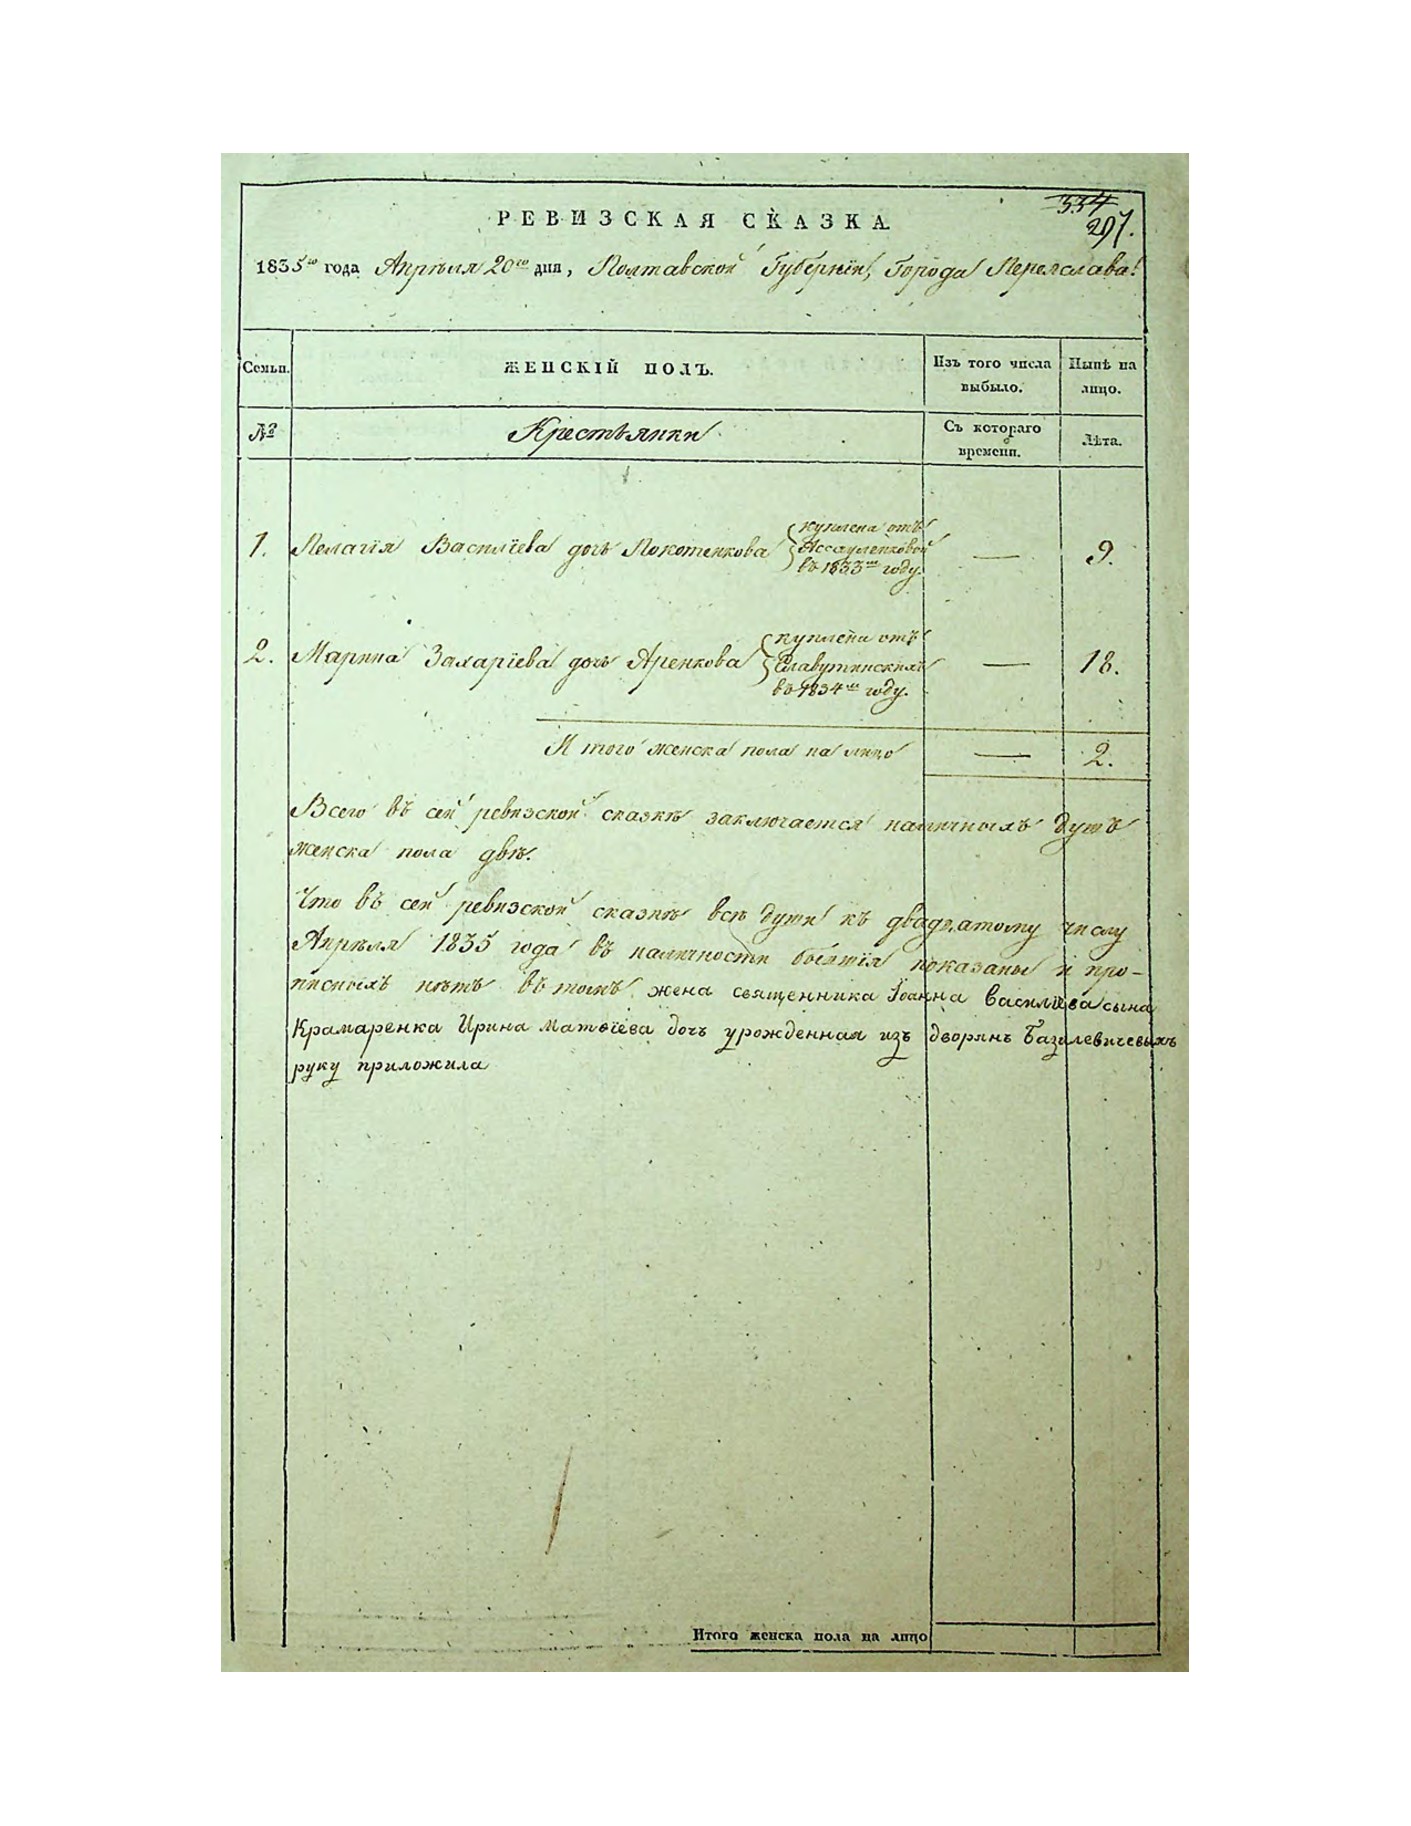 РЕВИЗСКАЯ СКАЗКА
334
297.
1835го года Апрѣля 20го дня, Полтавской Губерніи, Города Переяслава.
Семьи. ЖЕНСКІЙ ПОЛЪ. Изъ того числа выбыло. Нынѣ на лицо.
№ Крестьянки Съ котораго времени. Лѣта.
1. Пелагія Василіева дочь Покотенкова куплена отъ Ассауленковой въ 1833мъ году. — 9.
2. Марина Захаріева дочь Аренкова куплена отъ Славутинскихъ въ 1834мъ году. — 18.
Итого женска пола на лицо — 2.
Всего въ сей ревизской сказкѣ заключается наличныхъ душъ
женска пола двѣ.
Что въ сей ревизской сказкѣ всѣ души къ двадцатому числу
Апрѣля 1835 года въ наличности бытія показаны и про-
писныхъ нѣтъ въ томъ жена священника Іоанна Василіева сына
Крамаренка Ирина Матвіева дочь урожденная изъ дворянъ Базилевичевыхъ
руку приложила
Итого женска пола на лицо